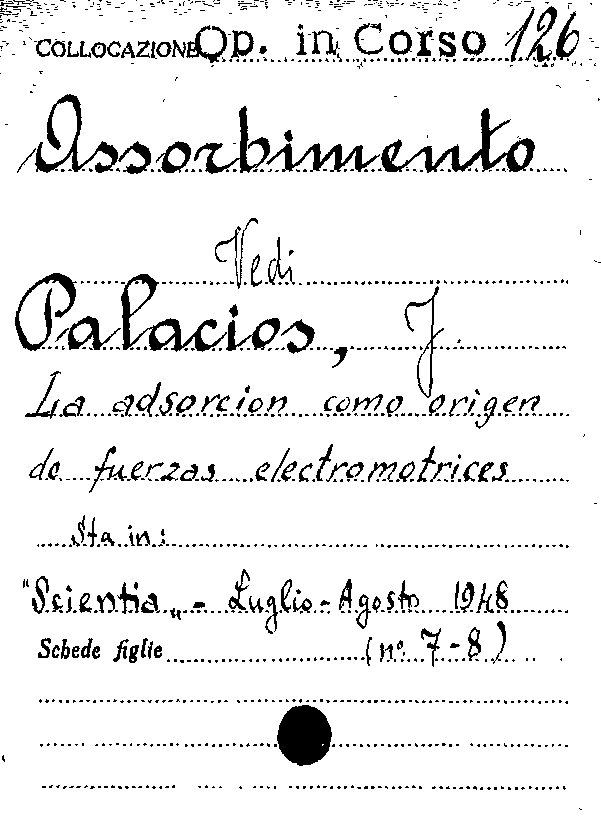 COLLOCAZIONE Op. in Corso 126
Assorbimento
Vedi
Palacios, J.
La adsorcion como origen
de fuerzas electromotrices
Sta in:
"Scientia" - Luglio - Agosto 1948
Schede figlie (n° 7-8)